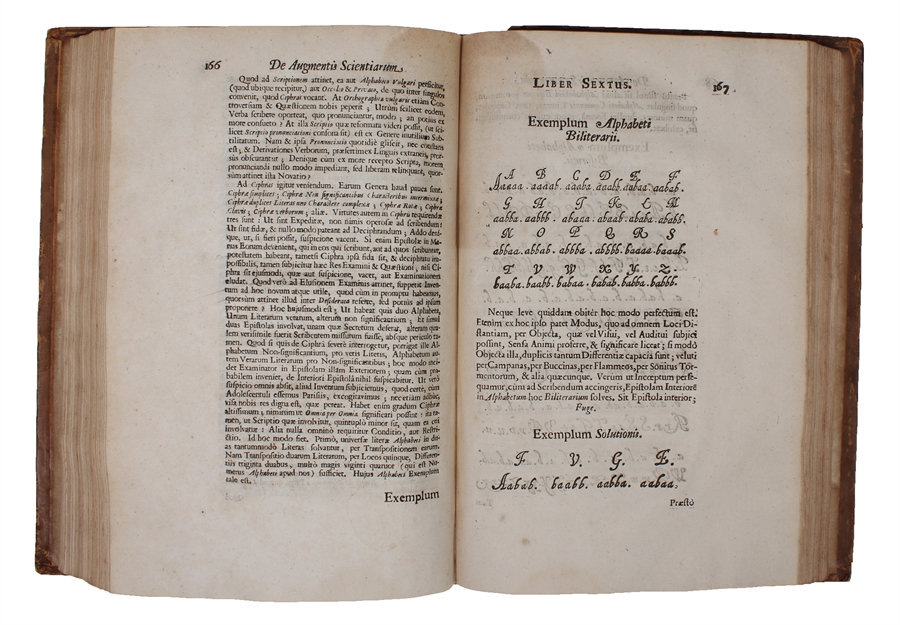 166 De Augmentis Scientiarum
Quod ad Scriptionem attinet, ea aut Alphabeto Vulgari perficitur,
(quod ubique recipitur,) aut Occulto & Privato, de quo inter singulos
convenit, quod Ciphras vocant. At Orthographia vulgaris etiam Con-
troversiam & Quæstionem nobis peperit; Utrum scilicet eodem,
Verba scribere oporteat, quo pronunciantur, modo; an potius ex
more consueto? At illa Scriptio quæ reformata videri possit, (ut sci-
licet Scriptio pronunciationi consona sit) est ex Genere inutilium Sub-
tilitatum. Nam & ipsa Pronunciatio quotidie gliscit, nec constans
est; & Derivationes Verborum, præsertim ex Linguis extraneis, pror-
sus obscurantur; Denique cum ex more recepto Scripta, morem
pronunciandi nullo modo impediant, sed liberam relinquant, quor-
sum attinet ista Novatio?
Ad Ciphras igitur veniendum. Earum Genera haud pauca sunt,
Ciphræ simplices; Ciphræ Non significantibus Characteribus intermixtæ;
Ciphræ duplices Literas uno Charactere complexæ; Cyphræ Rotæ; Ciphræ
Clavis; Ciphræ verborum; aliæ. Virtutes autem in Ciphris requirendæ
tres sunt: Ut sint Expeditæ, non nimis operosæ ad scribendum:
Ut sint fidæ, & nullo modo pateant ad Deciphrandum; Addo deni-
que, ut, si fieri possit, suspicione vacent. Si enim Epistolæ in Ma-
nus Eorum devenient, qui in eos qui scribunt, aut ad quos scribuntur,
potestatem habeant, tametsi Ciphra ipsa fida sit, & deciphratu im-
possibilis, tamen subjicitur hæc Res Examini & Quæstioni, nisi Ci-
phra sit ejusmodi, quæ aut suspicione, vacet, aut Examinationem
eludat. Quod verò ad Elusionem Examinis attinet, suppetit Inven-
tum ad hoc novum atque utile, quod cùm in promptu habeamus,
quorsum attinet illud inter Desiderata referre, sed potiùs id ipsum
proponere? Hoc hujusmodi est; Ut habeat quis duo Alphabeta,
Unum Literarum verarum, alterum non significantium; Et simul
duas Epistolas involvat, unam quæ Secretum deferat, alteram qua-
lem verisimile fuerit Scribentem missurum fuisse, absque periculo ta-
men. Quod si quis de Ciphrâ severè interrogetur, porrigat ille Al-
phabetum Non-significantium, pro veris Literis, Alphabetum au-
tem Verarum Literarum pro Non-significantibus; hoc modo inci-
det Examinator in Epistolam illam Exteriorem; quam cùm pro-
babilem inveniet, de Interiori Epistolâ nihil suspicabitur. Ut verò
suspicio omnis absit, aliud Inventum subjiciemus, quod certè, cùm
Adolescentuli essemus Parisiis, excogitavimus; nec etiam adhuc,
visa nobis res digna est, quæ pereat. Habet enim gradum Ciphræ
altissimum; nimirum ut Omnia per Omnia significari possint: ita ta-
men, ut Scriptio quæ involvitur, quintuplò minor sit, quam ea cui
involvatur: Alia nulla omninò requiritur Conditio, aut Restri-
ctio. Id hoc modo fiet. Primò, universæ literæ Alphabeti in du-
as tantummodò Literas solvantur, per Transpositionem earum.
Nam Transpositio duarum Literarum, per Locos quinque, Differen-
tiis triginta duabus, multò magis viginti quatuor (qui est Nu-
merus Alphabeti apud nos) sufficiet. Hujus Alphabeti Exemplum
tale est.
Exemplum
LIBER SEXTUS. 167
Exemplum Alphabeti
Biliterarii.
A B C D E F
Aaaaa. aaaab. aaaba. aaabb. aabaa. aabab.
G H I K L M
aabba. aabbb. abaaa. abaab. ababa. ababb.
N O P Q R S
abbaa. abbab. abbba. abbbb. baaaa. baaab.
T V W X Y Z
baaba. baabb. babaa. babab. babba. babbb.
Neque leve quiddam obiter hoc modo perfectum est.
Etenim ex hoc ipso patet Modus, quo ad omnem Loci Di-
stantiam, per Objecta, quæ vel Visui, vel Auditui subjici
possint, Sensa Animi proferre, & significare liceat; si modò
Objecta illa, duplicis tantum Differentiæ capacia sunt; veluti
per Campanas, per Buccinas, per Flammeos, per Sonitus Tor-
mentorum, & alia quæcunque. Verùm ut Inceptum perse-
quamur, cùm ad Scribendum accingeris, Epistolam Interiorē
in Alphabetum hoc Biliterarium solves. Sit Epistola interior;
Fuge.
Exemplum Solutionis.
F. V. G. E.
Aabab. baabb. aabba. aabaa,
Præstò